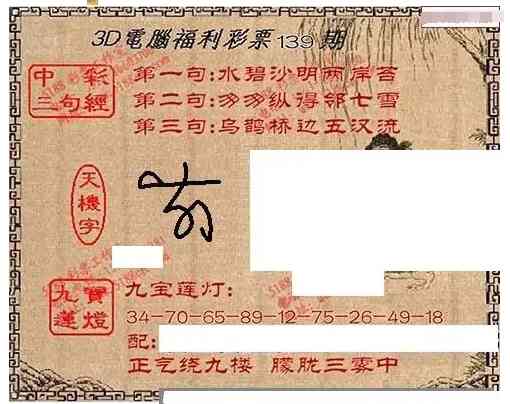 3D電腦福利彩票139期
中彩
三句經
第一句:水碧沙明两岸苔
第二句:纵得邻七雪
第三句:乌鹊桥边五汉流
天機字
九寶
蓮燈
九宝莲灯:
34-70-65-89-12-75-26-49-18
配:
正气绕九楼 朦胧三雾中